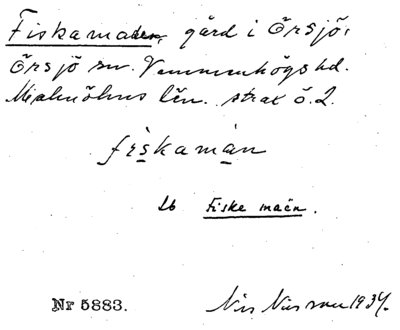 Fiskamaden, gård i Örsjö,
Örsjö sn. Vemmenhögs hd.
Malmöhus län. strax ö. 2.
friskamàn
Lb Fiske maen.
Nr 5883.
Nils Nilsson 1934.